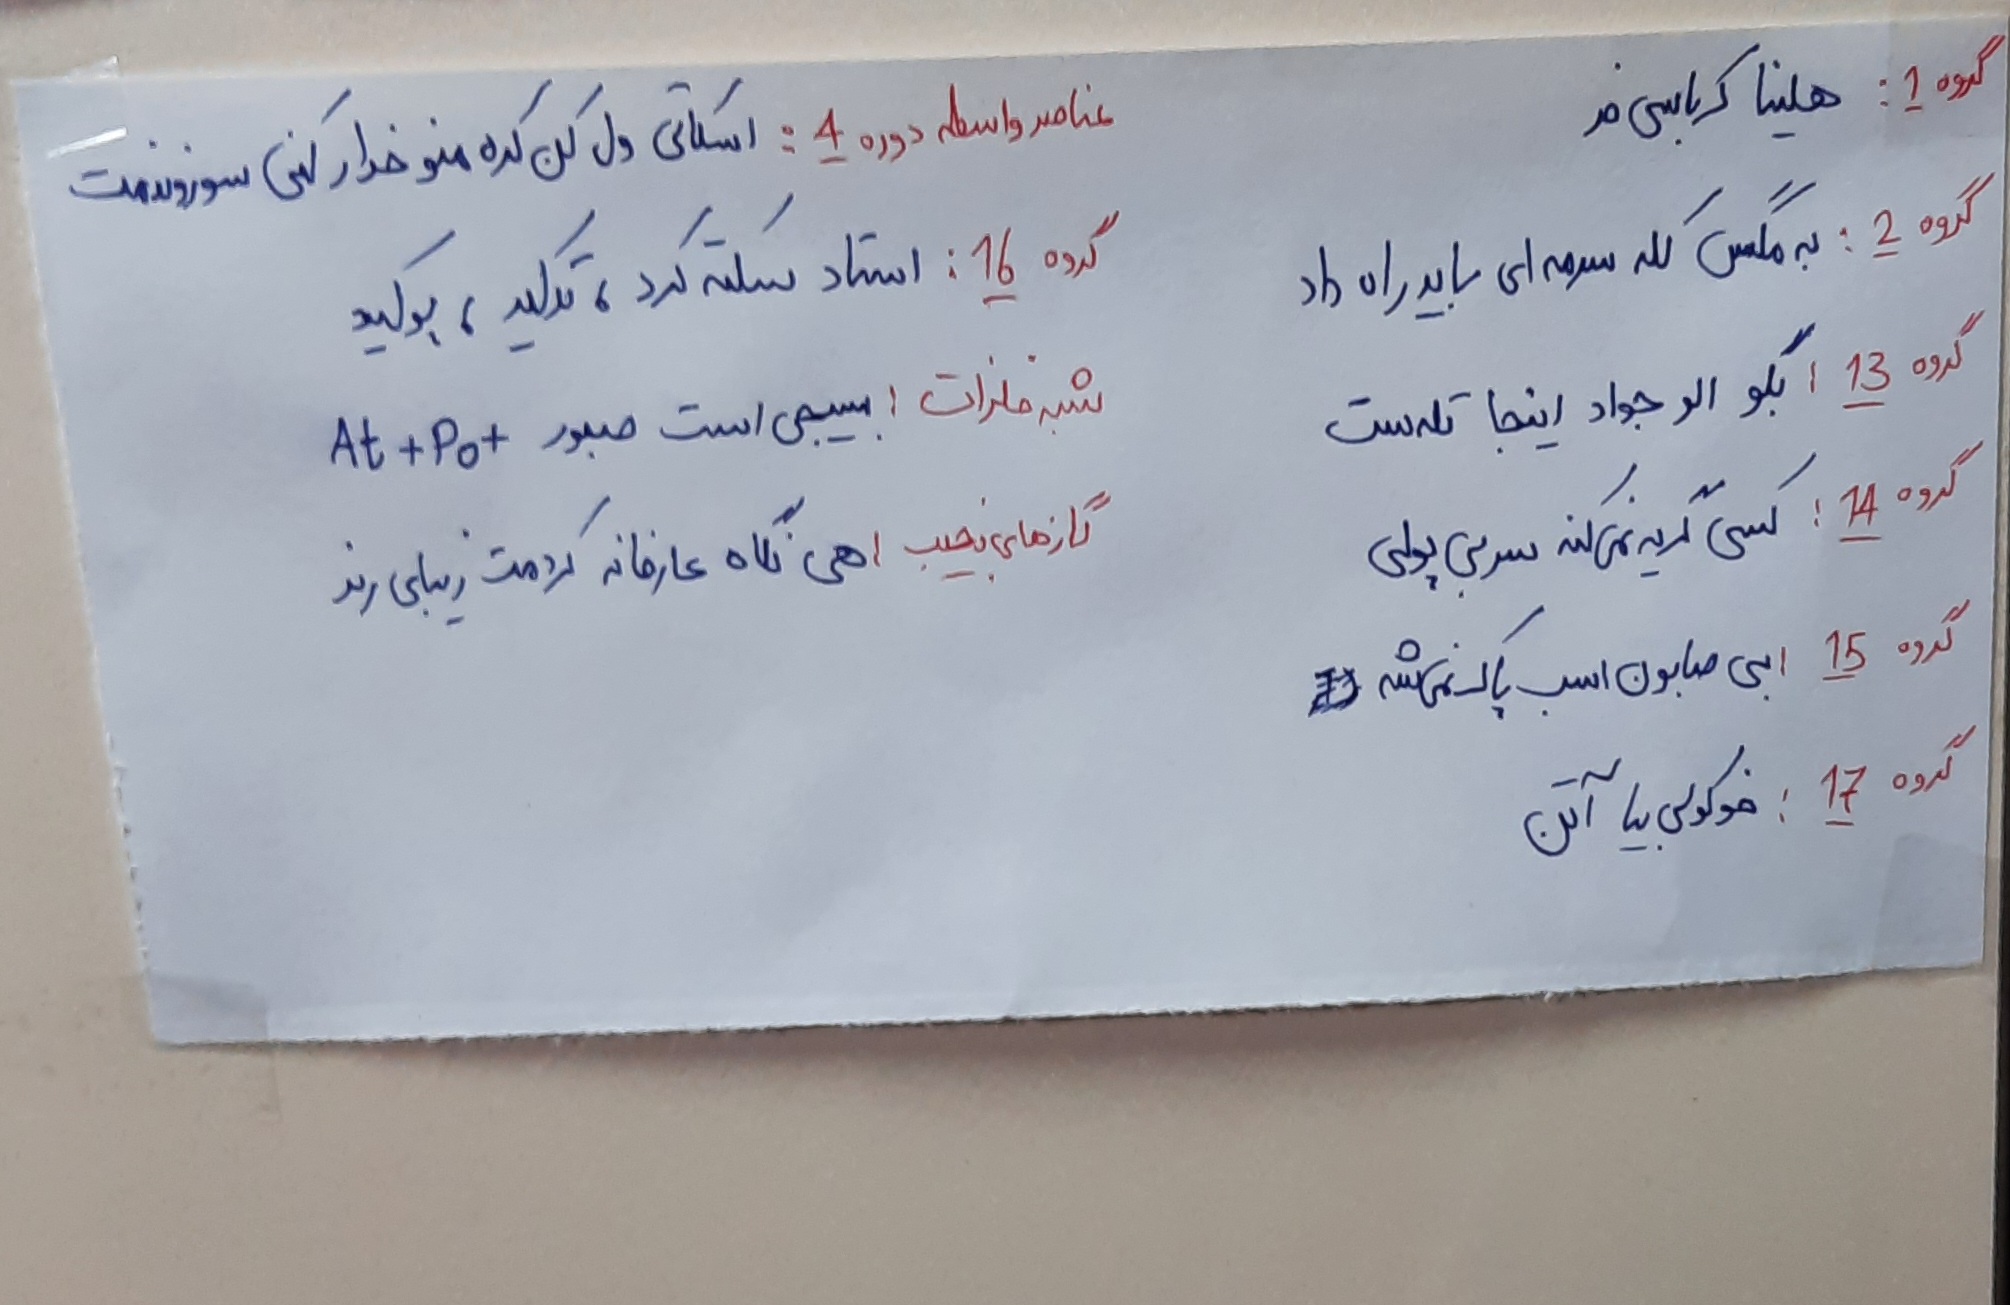 گروه 1 : هلینا کرباسی فر
گروه 2 : به مگس کله سرمه ای باید راه داد
گروه 13 : بگو الو جواد اینجا تله ست
گروه 14 : کسی گریه نمی کنه سر بی پولی
گروه 15 : بی صابون اسب پاک نمی شه
گروه 17 : فوکولی بیا آتن
عناصر واسطه دوره 4 : اسکاتی ول کن کره منو خدار کنی سوزوندمت
گروه 16 : استاد سکته کرد ، ترکید ، پوکید
شبه فلزات : بسیجی است صبور At + Po +
گازهای نجیب : هی نگاه عارفانه کردمت زیبای رند